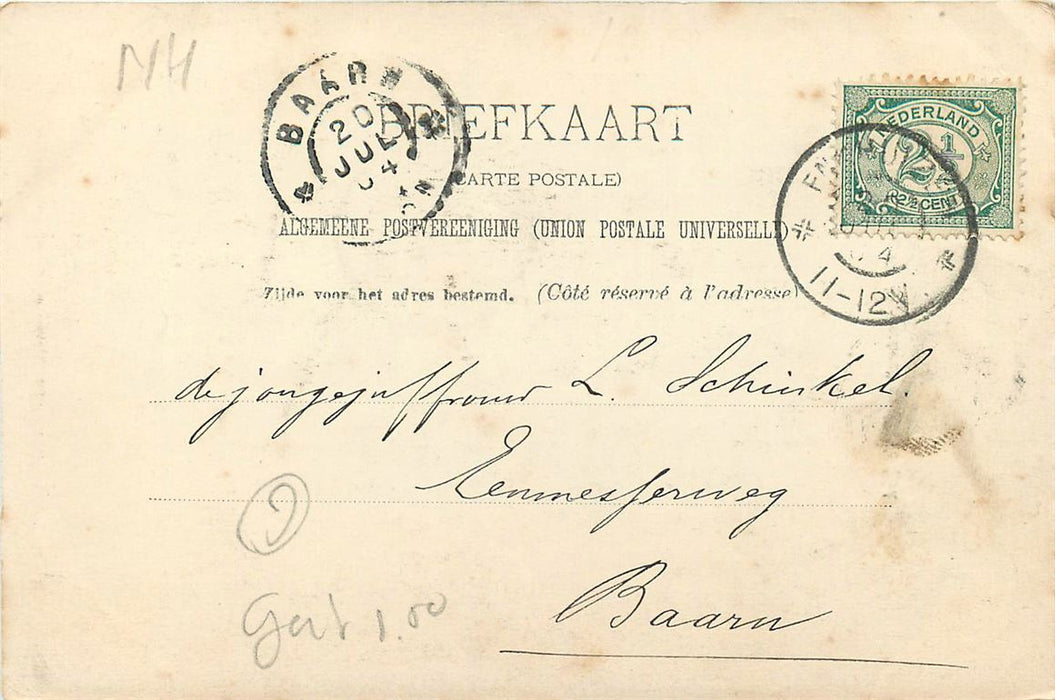 NH
BAARN
20
JUL
04
BRIEFKAART
(CARTE POSTALE)
ALGEMEENE POSTVEREENIGING (UNION POSTALE UNIVERSELLE)
Zijde voor het adres bestemd. (Côté réservé à l'adresse)
NEDERLAND
2½
2½ CENT
04
11-12V
de jongejuffrouw L. Schinkel.
Eemnesserweg
Baarn
1.00